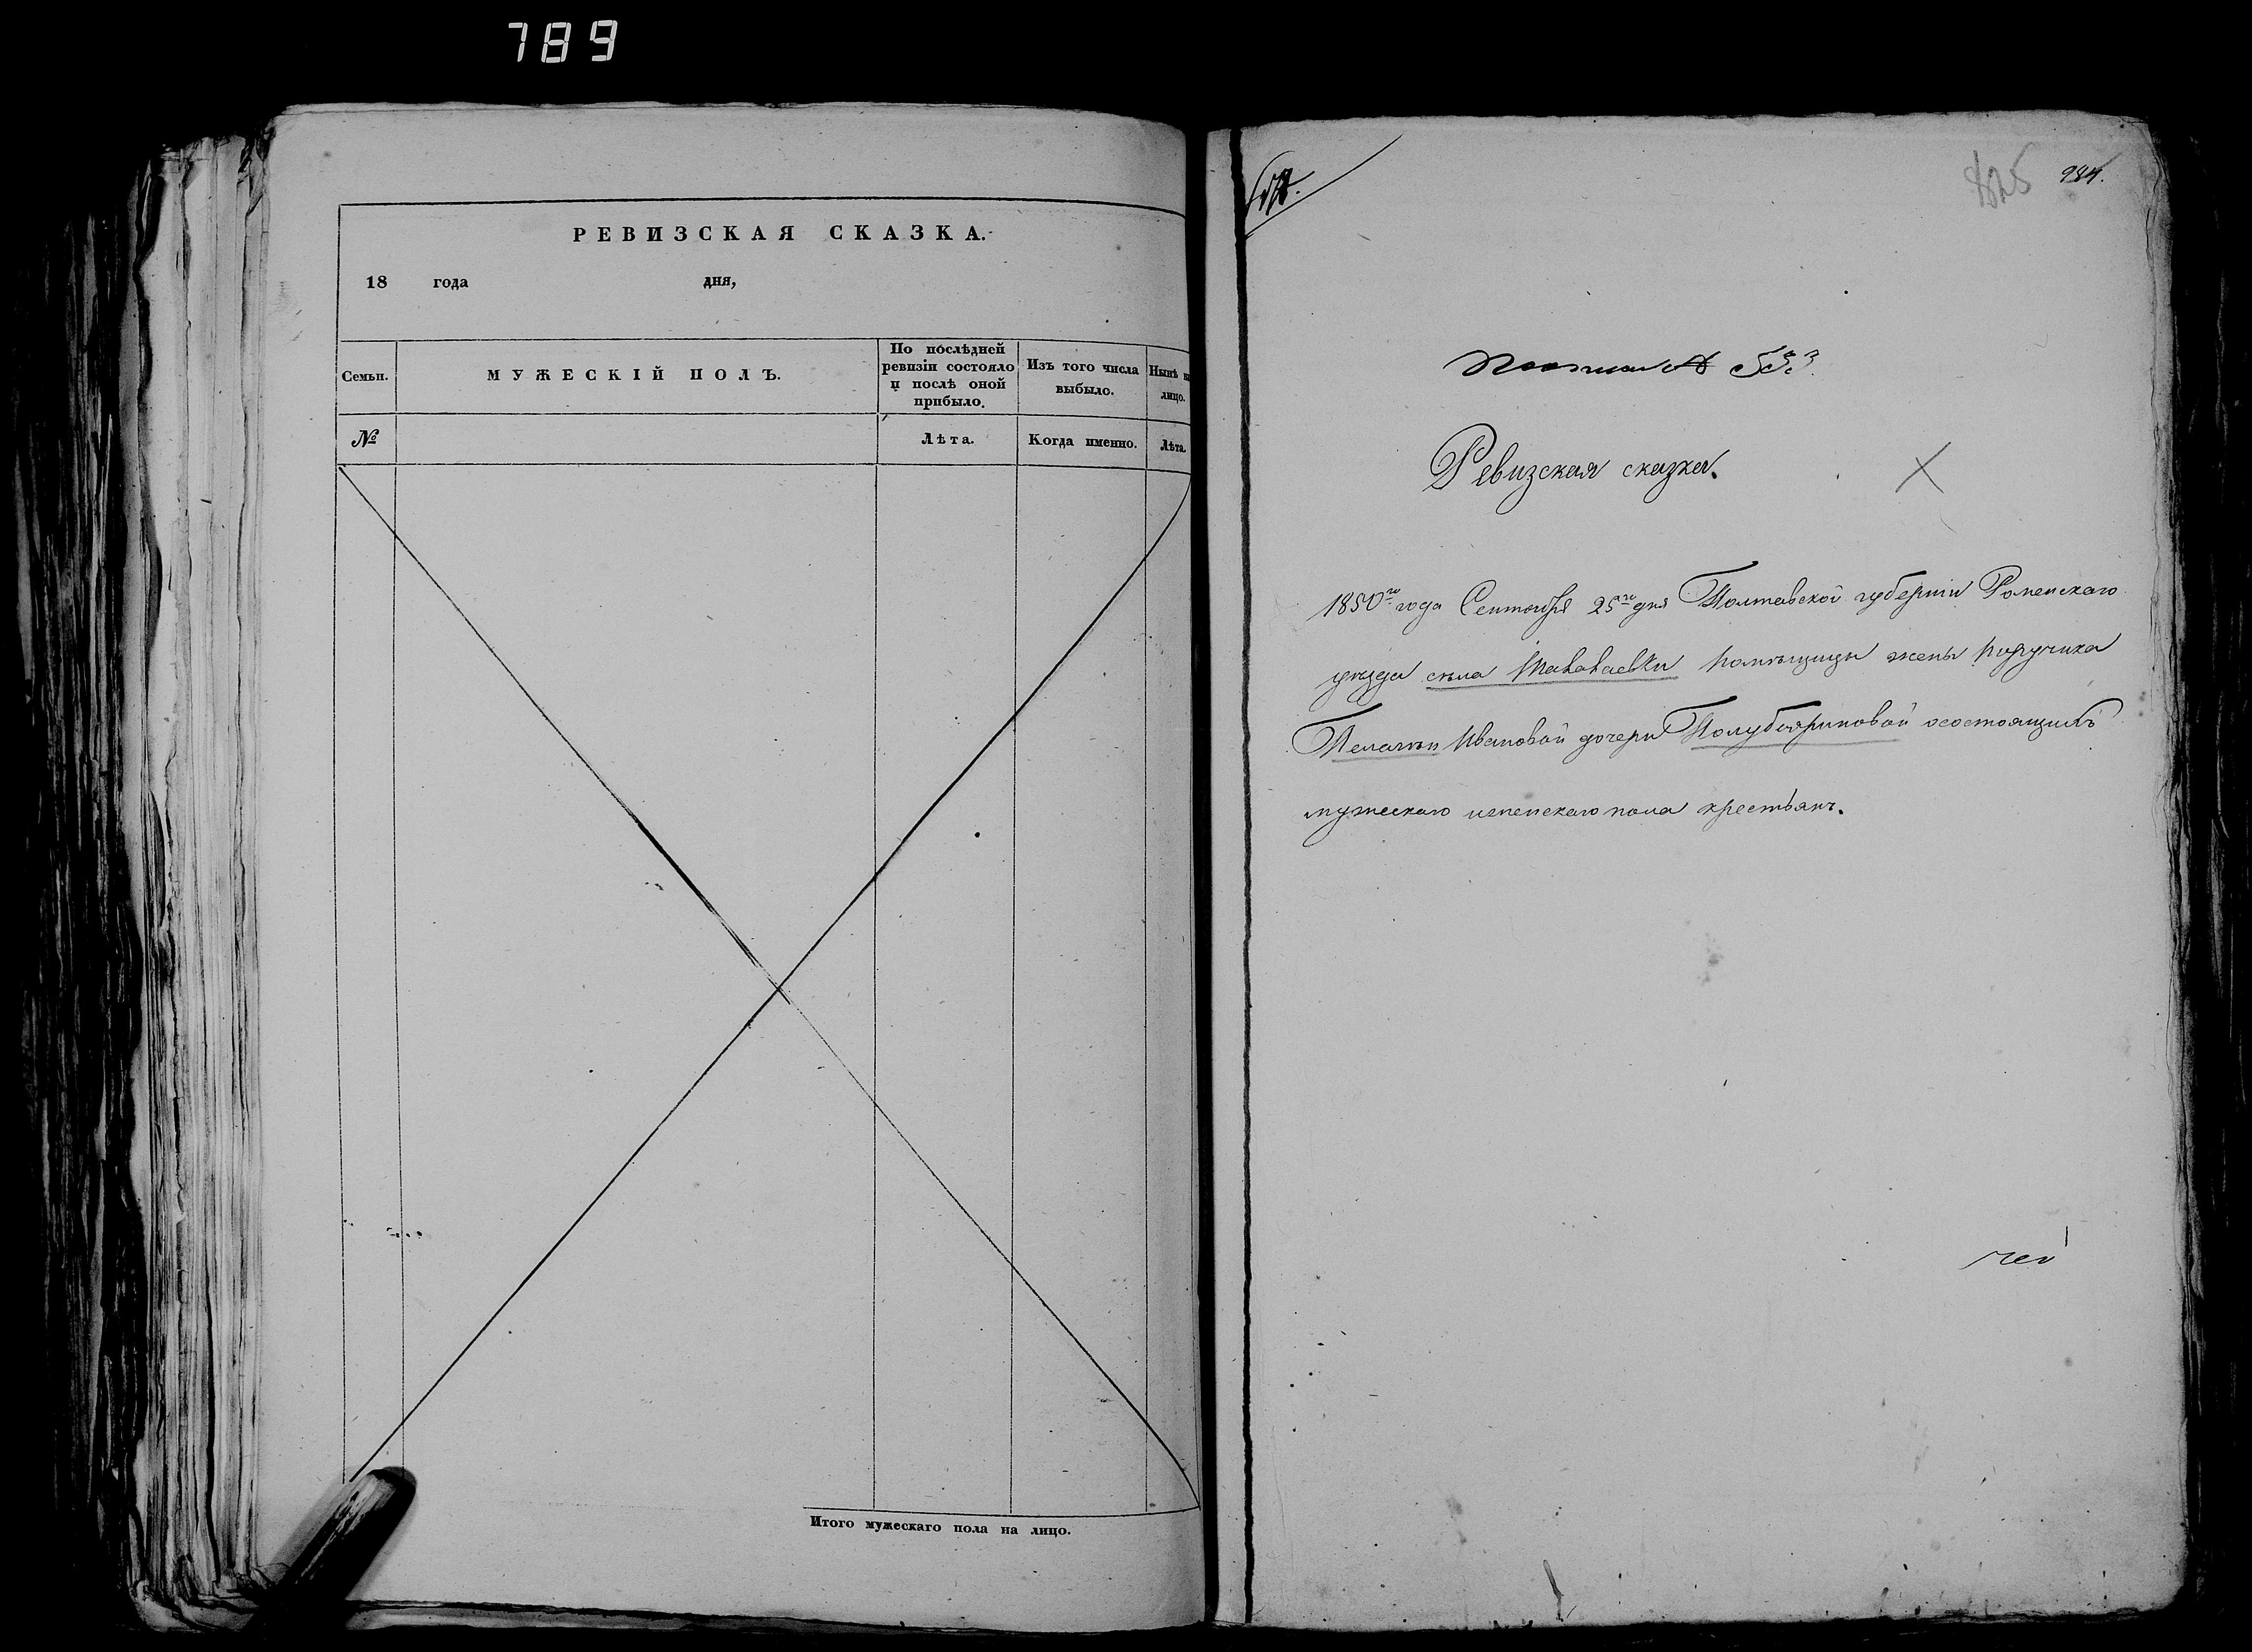 789
РЕВИЗСКАЯ СКАЗКА.
18 года дня,
Семьи.
МУЖЕСКІЙ ПОЛЪ.
По послѣдней ревизіи состояло и послѣ оной прибыло.
Изъ того числа выбыло.
Нынѣ на лицо.
№
Лѣта.
Когда именно.
Лѣта.
Итого мужескаго пола на лицо.
825 984.
533
Ревизская сказка.
1850го года Сентября 25го дня Полтавской губерніи Роменскаго
уѣзда села помѣщицы жены поручика
Пелагѣи Ивановой дочери Полубояриновой осостоящихъ
мужескаго иженскаго пола крестьянъ.